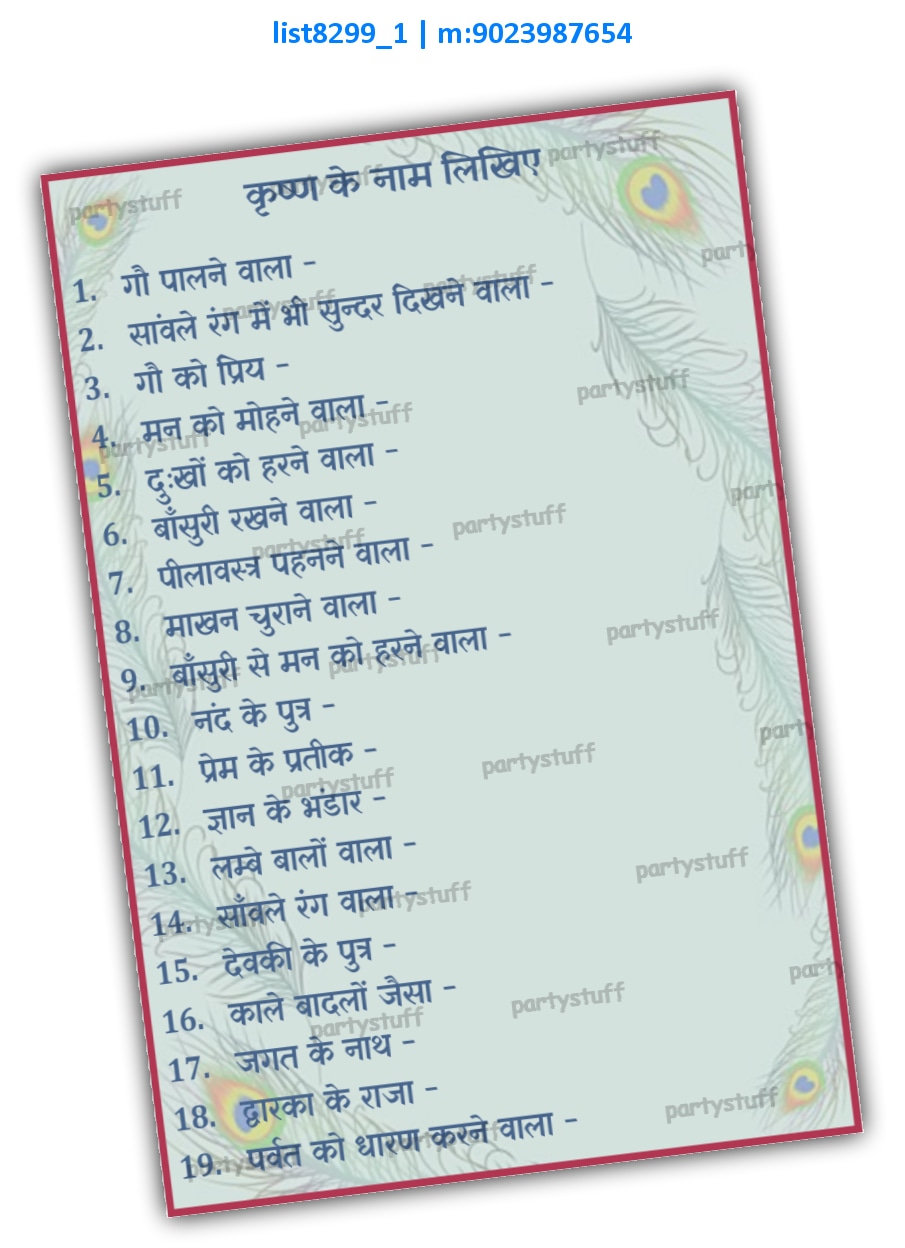 list8299_1 | m:9023987654
कृष्ण के नाम लिखिए
1. गौ पालने वाला -
2. सांवले रंग में भी सुन्दर दिखने वाला -
3. गौ को प्रिय -
4. मन को मोहने वाला -
5. दुःखों को हरने वाला -
6. बाँसुरी रखने वाला -
7. पीलावस्त्र पहनने वाला -
8. माखन चुराने वाला -
9. बाँसुरी से मन को हरने वाला -
10. नंद के पुत्र -
11. प्रेम के प्रतीक -
12. ज्ञान के भंडार -
13. लम्बे बालों वाला -
14. साँवले रंग वाला -
15. देवकी के पुत्र -
16. काले बादलों जैसा -
17. जगत के नाथ -
18. द्वारका के राजा -
19. पर्वत को धारण करने वाला -